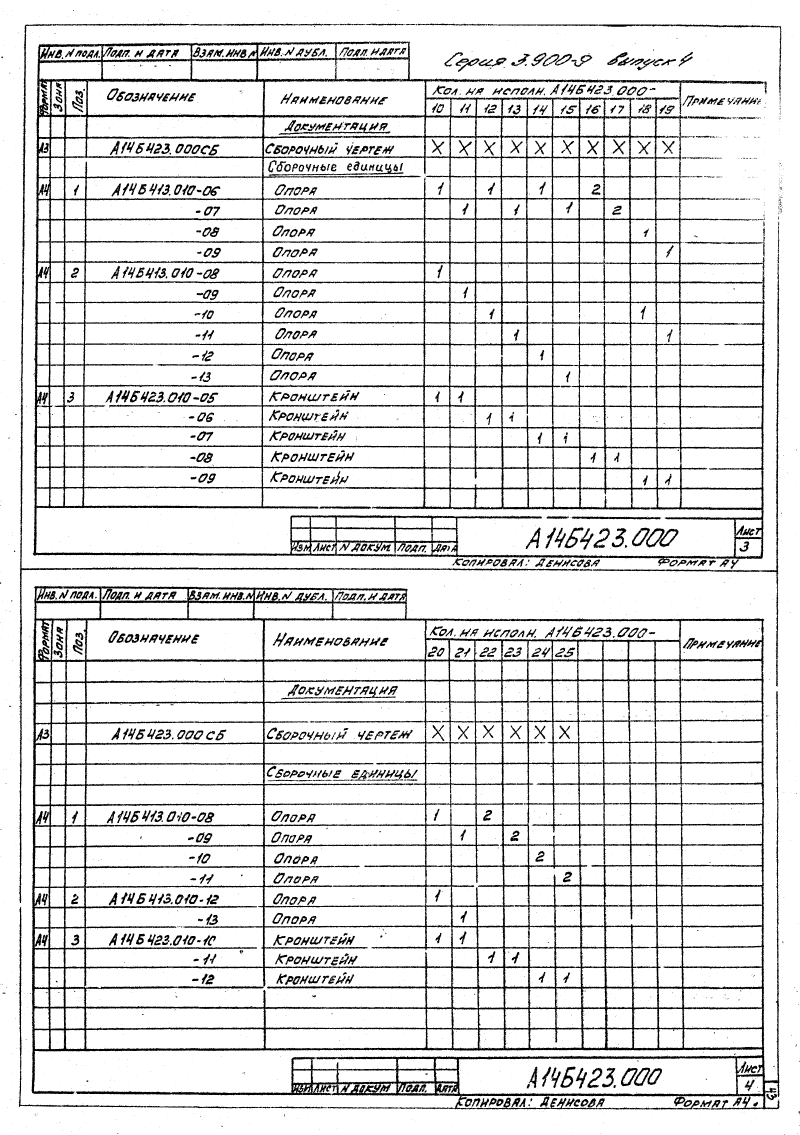 Инв. N подл. Подп. и дата Взам. инв. N Инв. N дубл. Подп. и дата
Серия 3.900-9 выпуск 4
Формат Зона Поз. Обозначение Наименование Кол. на исполн. А14Б423.000- Примечание
10 11 12 13 14 15 16 17 18 19
Документация
А3 А14Б423.000СБ Сборочный чертеж X X X X X X X X X X
Сборочные единицы
А4 1 А14Б413.010-06 Опора 1 1 1 2
-07 Опора 1 1 1 2
-08 Опора 1
-09 Опора 1
А4 2 А14Б413.010-08 Опора 1
-09 Опора 1
-10 Опора 1 1
-11 Опора 1 1
-12 Опора 1
-13 Опора 1
А4 3 А14Б423.010-05 Кронштейн 1 1
-06 Кронштейн 1 1
-07 Кронштейн 1 1
-08 Кронштейн 1 1
-09 Кронштейн 1 1
А14Б423.000
Лист
3
Изм Лист N докум. Подп. Дата
Копировал: Денисова Формат А4
Инв. N подл. Подп. и дата Взам. инв. N Инв. N дубл. Подп. и дата
Формат Зона Поз. Обозначение Наименование Кол. на исполн. А14Б423.000- Примечание
20 21 22 23 24 25
Документация
А3 А14Б423.000СБ Сборочный чертеж X X X X X X
Сборочные единицы
А4 1 А14Б413.010-08 Опора 1 2
-09 Опора 1 2
-10 Опора 2
-11 Опора 2
А4 2 А14Б413.010-12 Опора 1
-13 Опора 1
А4 3 А14Б423.010-10 Кронштейн 1 1
-11 Кронштейн 1 1
-12 Кронштейн 1 1
А14Б423.000
Лист
4
Изм Лист N докум Подп. Дата
Копировал: Денисова Формат А4.